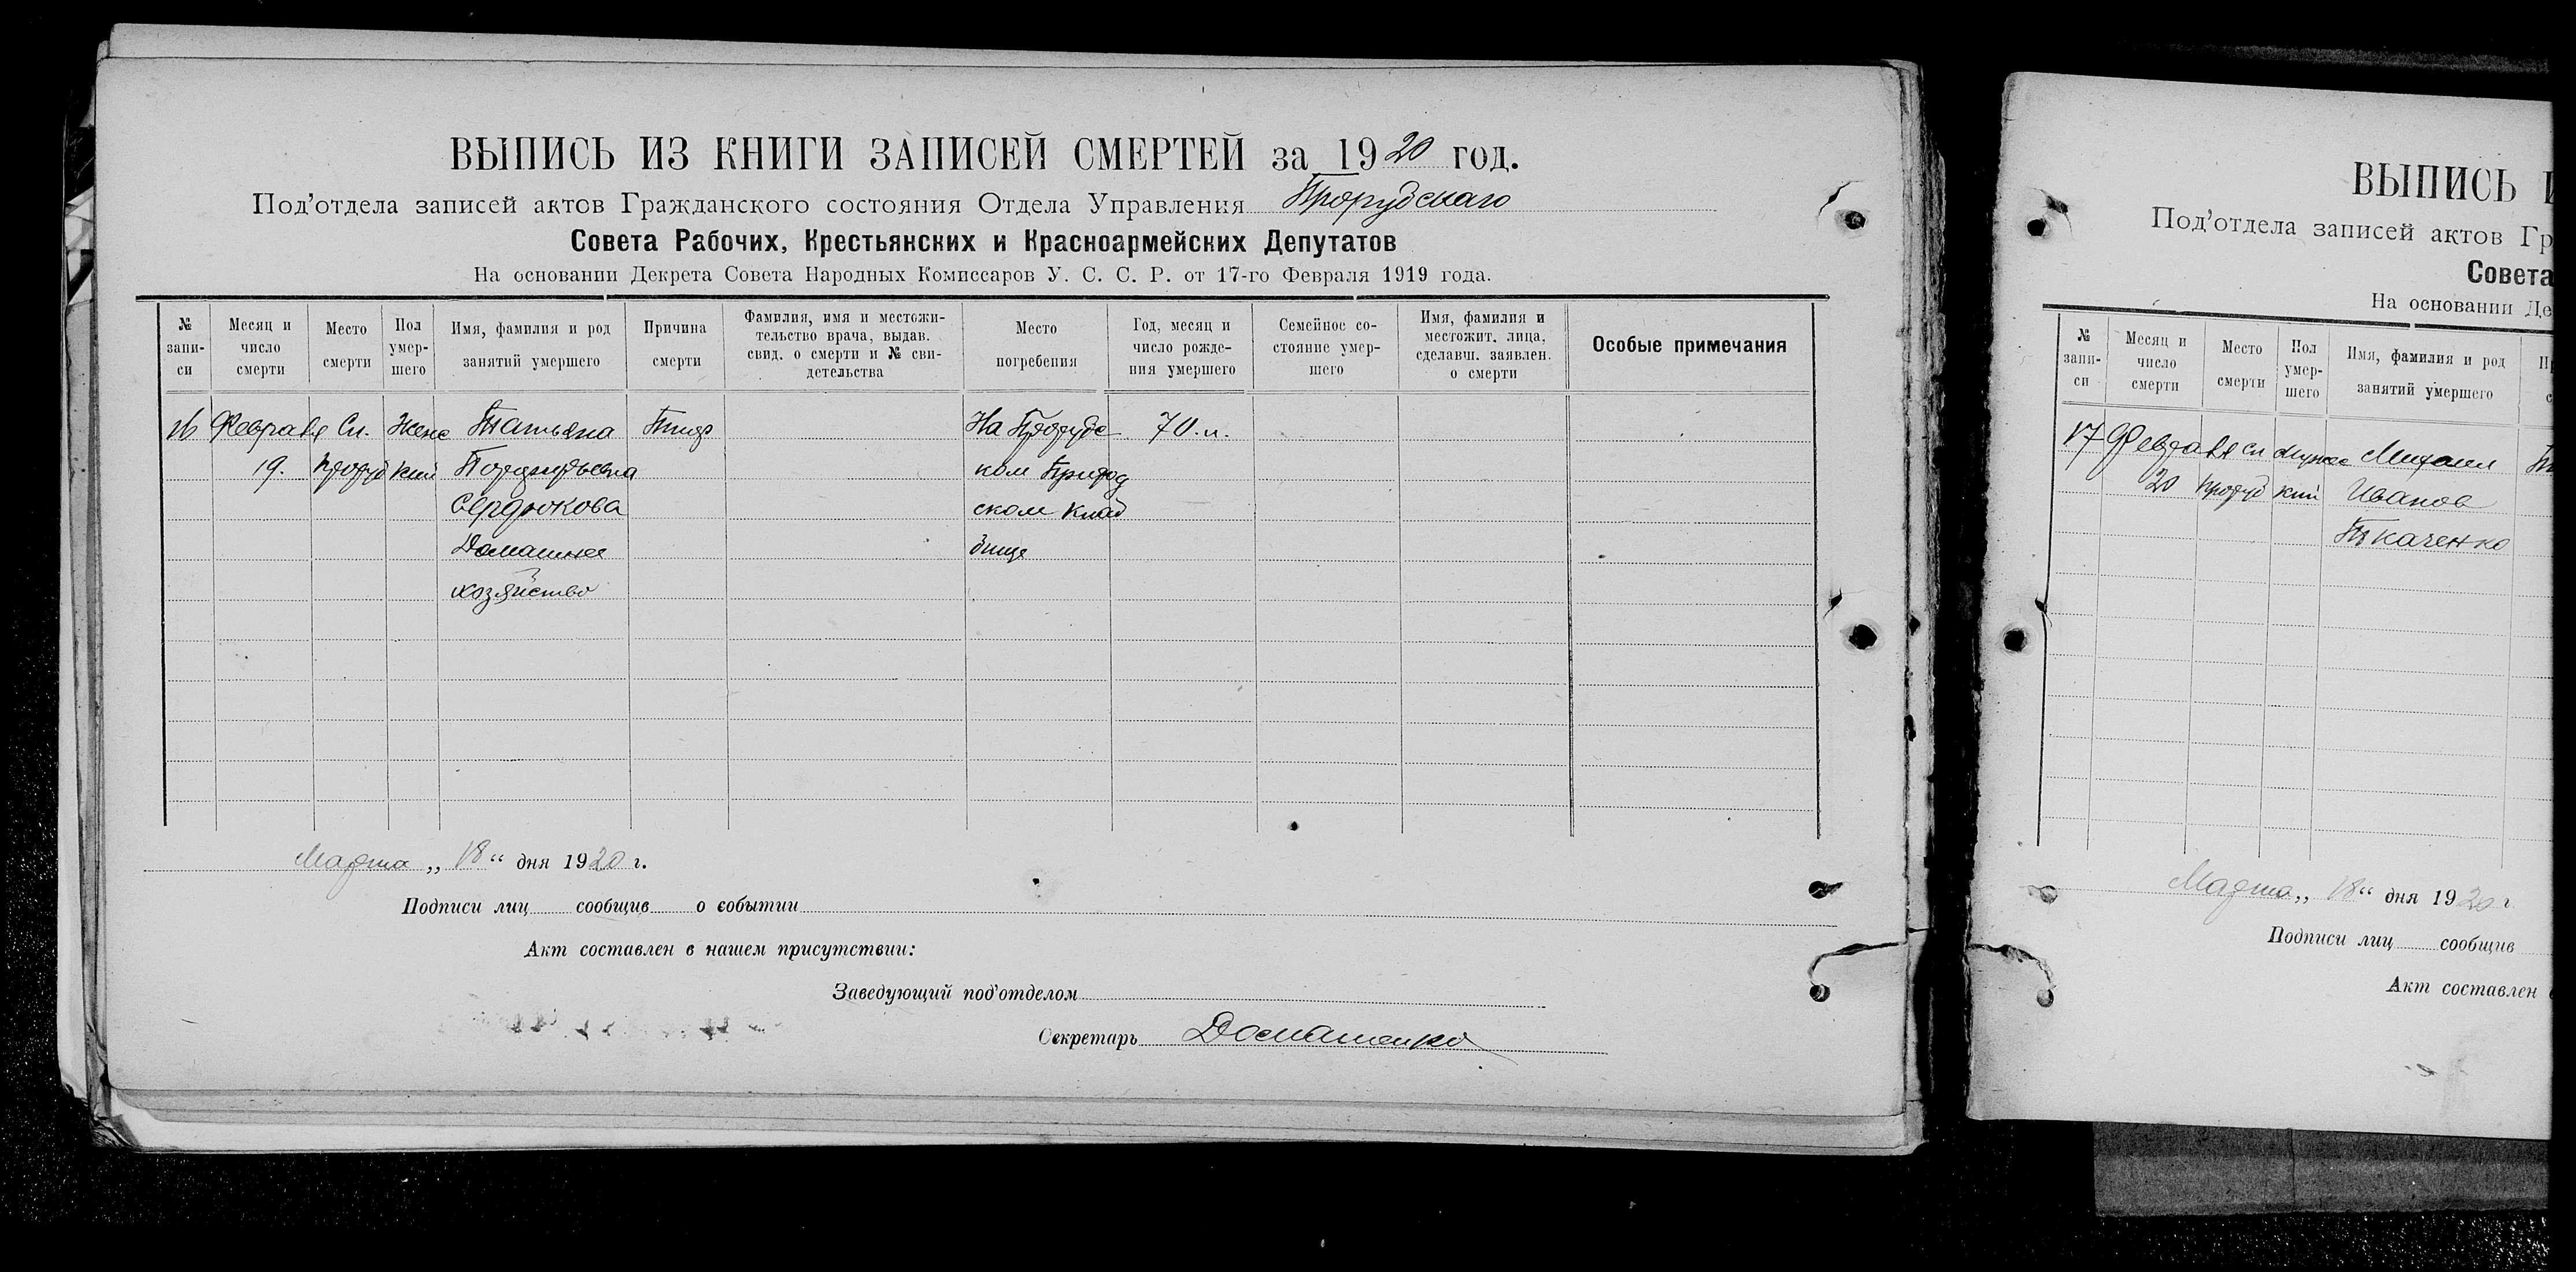 ВЫПИСЬ ИЗ КНИГИ ЗАПИСЕЙ СМЕРТЕЙ за 1920 год.
Под'отдела записей актов Гражданского состояния Отдела Управления Прорубскаго
Совета Рабочих, Крестьянских и Красноармейских Депутатов
На основании Декрета Совета Народных Комиссаров У. С. С. Р. от 17-го Февраля 1919 года.
№ запи-си
Месяц и число смерти
Место смерти
Пол умер-шего
Имя, фамилия и род занятий умершего
Причина смерти
Фамилия, имя и местожи-тельство врача, выдав. свид. о смерти и № сви-детельства
Место погребения
Год, месяц и число рожде-ния умершего
Семейное со-стояние умер-шего
Имя, фамилия и местожит. лица, сделавш. заявлен. о смерти
Особые примечания
16 Февраля Сл. Женс Татьяна Тиф На Прорубс 70.л.
19. Проруб кий ком Приход
Сердюкова ском Клад
Домашнее бище
хозяйство
Марта „ 18 “ дня 1920 г.
Подписи лиц сообщив о событии
Акт составлен в нашем присутствии:
Заведующий под'отделом
Секретарь Домашенко
ВЫПИСЬ
Под'отдела записей актов Гр
Совета
На основании Де
№ запи-си
Месяц и число смерти
Место смерти
Пол умер-шего
Имя, фамилия и род занятий умершего
17 Февраля Сл Мужес Михаил
20 Проруб кий Иванов
Ткаченко
Марта „ 18 “ дня 1920 г
Подписи лиц сообщив
Акт составлен